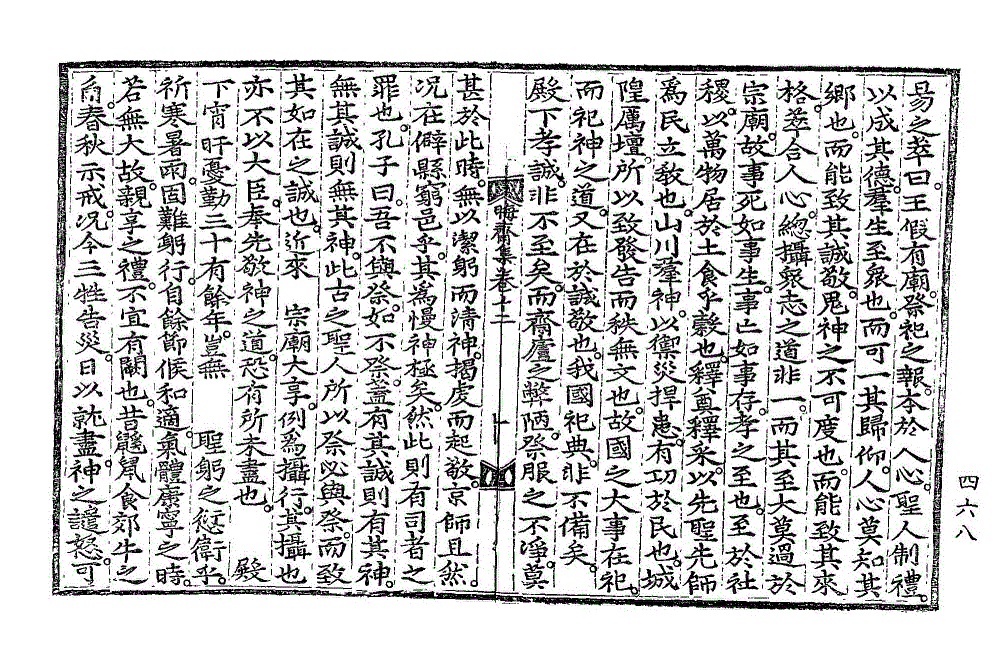 易之萃曰。王假有廟。祭祀之報。本於人心。聖人制禮。
以成其德。羣生至衆也。而可一其歸仰。人心莫知其
鄉也。而能致其誠敬。鬼神之不可度也。而能致其來
格。萃合人心。總攝衆志之道非一。而其至大莫過於
宗廟。故事死如事生。事亡如事存。孝之至也。至於社
稷。以萬物居於土食乎穀也。釋奠釋采。以先聖先師
爲民立敎也。山川羣神。以禦災捍患。有功於民也。城
隍厲壇。所以致發告而秩無文也。故國之大事在祀。
而祀神之道。又在於誠敬也。我國祀典。非不備矣。
殿下孝誠。非不至矣。而齋廬之弊陋。祭服之不淨。莫
晦齋集卷十二
十
甚於此時。無以潔躬而淸神揭虔而起敬。京師且然。
况在僻縣窮邑乎。其爲慢神極矣。然此則有司者之
罪也。孔子曰。吾不與祭。如不祭。蓋有其誠則有其神。
無其誠則無其神。此古之聖人所以祭必與祭。而致
其如在之誠也。近來 宗廟大享。例爲攝行。其攝也
亦不以大臣。奉先敬神之道。恐有所未盡也。 殿
下宵旰憂勤三十有餘年。豈無 聖躬之愆衛乎。
祈寒暑雨。固難躬行。自餘節候和適。氣體康寧之時。
若無大故。親享之禮。不宜有闕也。昔鼷鼠食郊牛之
角。春秋示戒。况今三牲告災。日以就盡。神之譴怒。可
四六八